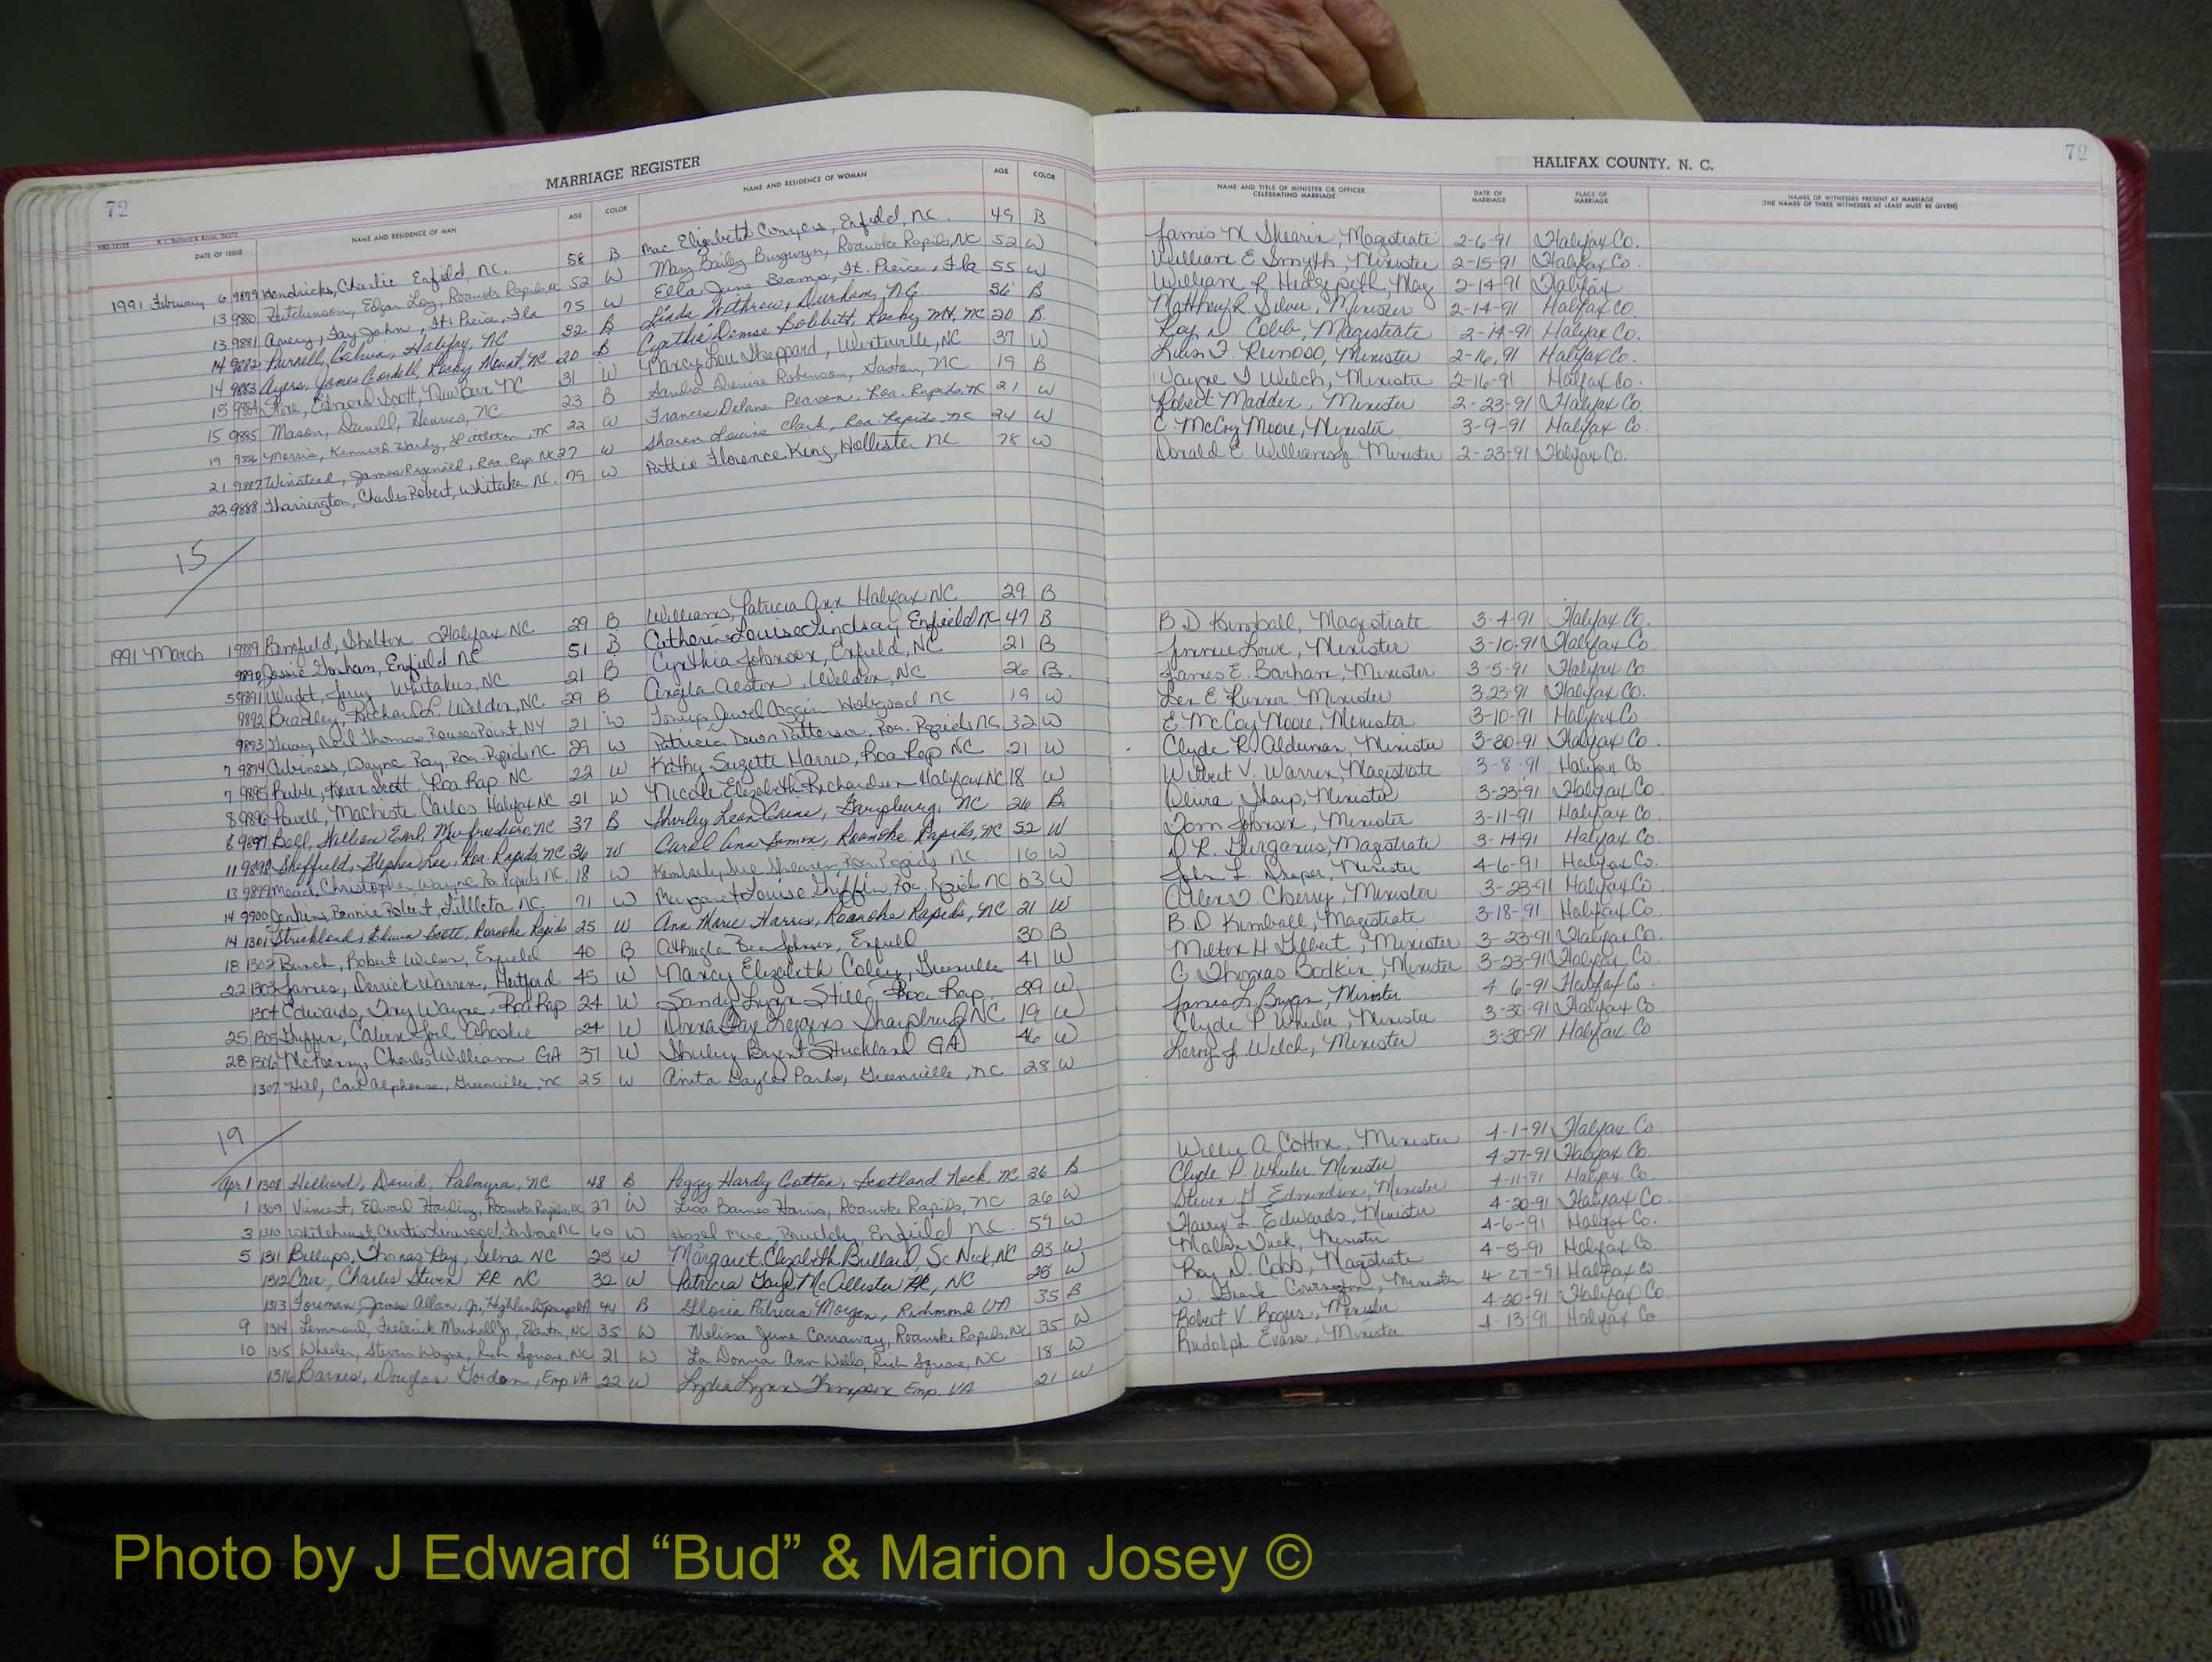 MARRIAGE REGISTER
72
DATE OF ISSUE NAME AND RESIDENCE OF MAN AGE COLOR NAME AND RESIDENCE OF WOMAN AGE COLOR
1991 February 6 9879 Hendricks, Charlie Enfield, NC. 58 B Mae Elizabeth Conyers, Enfield, NC. 49 B
13 9880 Hutchinson, Edgar Loy, Roanoke Rapids, NC 52 W Mary Bailey Burgwyn, Roanoke Rapids, NC 52 W
13 9881 Avery, Fay John, Ft. Pierce, Fla 75 W Ella June Beamp, Ft. Pierce, Fla 55 W
14 9882 Purnell, Calvin, Halifax, NC 32 B Linda Withrow, Durham, N.C. 36 B
14 9883 Ayers, James Cordell, Rocky Mount, NC 20 B Cynthia Denise Bobbitt, Rocky Mt, NC 20 B
15 9884 Flore, Edmond Scott, New Bern NC 31 W Nancy Lou Sheppard, Winterville, NC 37 W
15 9885 Mason, Darnell, Henrico, NC 23 B Sandra Denise Robinson, Gaston, NC 19 B
19 9886 Morris, Kenneth Hardy, Littleton, NC 22 W Frances Delane Pearson, Roa. Rapids, NC 21 W
21 9887 Winstead, James Reginald, Roa. Rap. NC 27 W Sharon Louise Clark, Roa. Rapids, NC 24 W
22 9888 Tharrington, Charles Robert, Whitaker NC. 79 W Pattie Florence King, Hollister NC 78 W
15
1991 March 1 9889 Banfield, Shelton Halifax NC 29 B Williams, Patricia Ann Halifax NC 29 B
9890 Jessie Gorham, Enfield NC 51 B Catherine Louise Lindsay, Enfield NC 47 B
5 9891 Wright, Jerry Whitakers, NC 21 B Cynthia Johnson, Enfield, NC 21 B
9892 Bradley, Richard L. Weldon, NC. 29 B Angela Alston, Weldon, NC 26 B.
9893 Neil Thomas, Rouses Point, NY 21 W Jewel Coggin Hobgood NC 19 W
7 9894 Cubiness, Wayne Ray, Roa. Rapids NC. 29 W Patricia Dawn Patterson, Roa. Rapids NC 32 W
7 9895 Scott, Roa Rap NC 22 W Kathy Suzette Harris, Roa Rap NC 21 W
8 9896 Powell, Machiste Carlos Halifax NC 21 W Nicole Elizabeth Richardson Halifax NC 18 W
8 9897 Bell, William Earl, Murfreesboro, NC 37 B Shirley Lean Garysburg, NC 26 B.
11 9898 Sheffield, Stephen Lee, Roa. Rapids, NC 36 W Carol Ann Simon, Roanoke Rapids, NC 52 W
13 9899 Mead, Christopher Wayne, Roa Rapids NC. 18 W Kimberly Sue Shearin Roa Rapids NC 16 W
14 9900 Jenkins, Bennie Robert, Littleton NC. 71 W Margaret Louise Griffin, Roa. Rapids NC 63 W
14 1301 Strickland, Edwin Scott, Roanoke Rapids 25 W Ann Marie Harris, Roanoke Rapids, NC 21 W
18 1302 Burch, Robert Wilson, Enfield 40 B Bea Johnson, Enfield 30 B
22 1303 James, Derrick Warren, Hertford 45 W Nancy Elizabeth Coley, Greenville 41 W
1304 Edwards, Tony Wayne, Roa Rap 24 W Sandy Lynn Still, Roa Rap 29 W
25 1305 Griffin, Calvin Joel Ahoskie 24 W Donna Gay Leggins Sharpsburg NC 19 W
28 1306 McKenny, Charles William GA 37 W Shirley Bryent Strickland GA 46 W
1307 Hill, Carl Alphonse, Greenville, NC 25 W Anita Gayle Parks, Greenville, NC 28 W
19
Apr 1 1308 Hilliard, David, Palmyra, NC 48 B Peggy Hardy Cotten, Scotland Neck, NC 36 B
1 1309 Vincent, Edward Harding, Roanoke Rapids, NC 27 W Lisa Barnes Harris, Roanoke Rapids, NC 26 W
3 1310 Whitehurst, Curtis Tarboro NC 60 W Hazel Mae Enfield NC. 59 W
5 1311 Billups, Thomas Ray, Selma NC 25 W Margaret Elizabeth Bullard, Sc Neck, NC 23 W
1312 Carr, Charles Steven RR NC 32 W Patricia Gaye McCallister RR, NC 28 W
1313 Foreman, James Allan, Jr., Highland Springs VA 44 B Gloria Patricia Morgan, Richmond VA 35 B
9 1314 Lemmond, Frederick Marshall Jr, NC 35 W Melissa June Carraway, Roanoke Rapids, NC 35 W
10 1315 Wheeler, Steven Wayne, Rich Square, NC 21 W La Donna Ann Wells, Rich Square, NC 18 W
1316 Barnes, Douglas Gordon, Emp VA 22 W Lydia Lynn Thompson Emp. VA 21 W
HALIFAX COUNTY, N. C.
72
NAME AND TITLE OF MINISTER OR OFFICER CELEBRATING MARRIAGE DATE OF MARRIAGE PLACE OF MARRIAGE NAMES OF WITNESSES PRESENT AT MARRIAGE (THE NAMES OF THREE WITNESSES AT LEAST MUST BE GIVEN)
James N Shearin, Magistrate 2-6-91 Halifax Co.
William E Smyth, Minister 2-15-91 Halifax Co.
William R Hedgepeth, Mag 2-14-91 Halifax
Matthey R Silver, Minister 2-14-91 Halifax Co.
Roy D. Cobb, Magistrate 2-14-91 Halifax Co.
Luis F. Reinoso, Minister 2-16,91 Halifax Co.
Wayne T Welch, Minister 2-16-91 Halifax Co.
Robert Maddox, Minister 2-23-91 Halifax Co
C McCoy Moore, Minister 3-9-91 Halifax Co
Donald E Williams, Minister 2-23-91 Halifax Co.
B D Kimball, Magistrate 3-4-91 Halifax Co.
Jimmie Lowe, Minister 3-10-91 Halifax Co
James E. Barham, Minister 3-5-91 Halifax Co
E. Minister 3-23-91 Halifax Co.
E. McCoy Moore, Minister 3-10-91 Halifax Co
Clyde R. Alderman, Minister 3-30-91 Halifax Co.
Wilbert V. Warren, Magistrate 3-8-91 Halifax Co
Olivia Sharp, Minister 3-23-91 Halifax Co
Tom Johnson, Minister 3-11-91 Halifax Co.
D R. Gurganus, Magistrate 3-14-91 Halifax Co.
John L. Draper, Minister 4-6-91 Halifax Co.
Allen D Cherry, Minister 3-23-91 Halifax Co
B. D Kimball, Magistrate 3-18-91 Halifax Co.
Milton H Gilbert, Minister 3-23-91 Halifax Co.
C. Thomas Bodkin, Minister 3-23-91 Halifax Co
James L Bryan, Minister 4 6-91 Halifax Co.
Clyde P Wheeler, Minister 3-30-91 Halifax Co
Leroy J. Welch, Minister 3-30-91 Halifax Co
Willie A Cotton, Minister 4-1-91 Halifax Co
Clyde P. Wheeler. Minister 4-27-91 Halifax Co
Steven H Edmondson, Minister 4-11-91 Halifax Co.
Harry L. Edwards, Minister 4-20-91 Halifax Co.
Tuck, Minister 4-6-91 Halifax Co.
Roy D. Cobb, Magistrate 4-5-91 Halifax Co
Frank Minister 4-27-91 Halifax Co
Robert V. Rogers, Minister 4-20-91 Halifax Co.
Rudolph Evans, Minister 4-13-91 Halifax Co
Photo by J Edward “Bud” & Marion Josey ©